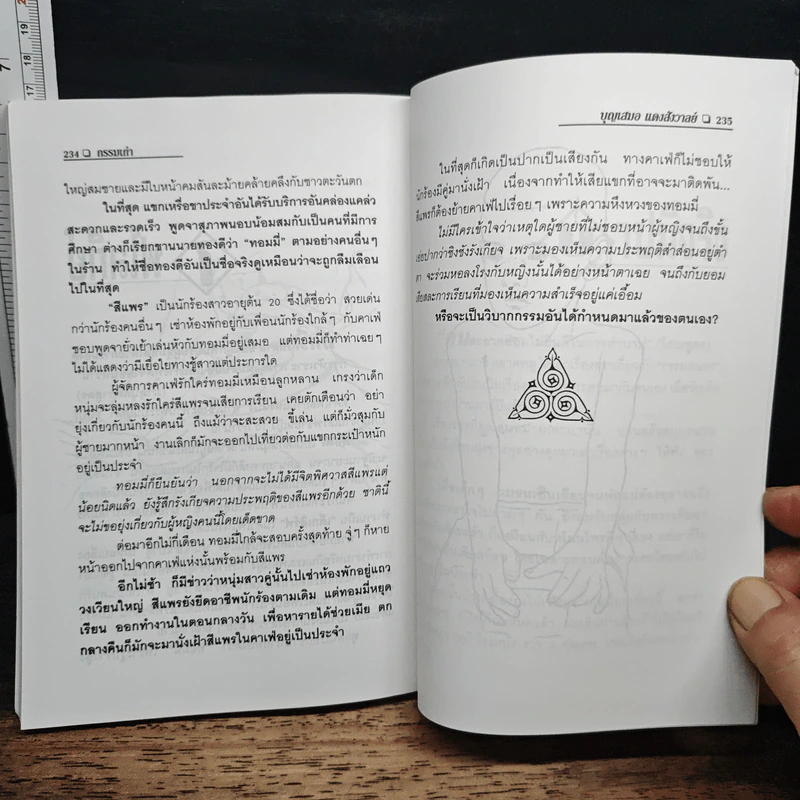 234 ❏ กรรมเก่า
ใหญ่สมชายและมีใบหน้าคมสันละม้ายคล้ายคลึงกับชาวตะวันตก
ในที่สุด แขกเหรื่อขาประจำอันได้รับบริการอันคล่องแคล่ว
สะดวกและรวดเร็ว พูดจาสุภาพนอบน้อมสมกับเป็นคนที่มีการ
ศึกษา ต่างก็เรียกขานนายทองดีว่า “ทอมมี่” ตามอย่างคนอื่นๆ
ในร้าน ทำให้ชื่อทองดีอันเป็นชื่อจริงดูเหมือนว่าจะถูกลืมเลือน
ไปในที่สุด
“สีแพร” เป็นนักร้องสาวอายุต้น 20 ซึ่งได้ชื่อว่า สวยเด่น
กว่านักร้องคนอื่นๆ เช่าห้องพักอยู่กับเพื่อนนักร้องใกล้ๆ กับคาเฟ่
ชอบพูดจายั่วเย้าเล่นหัวกับทอมมี่อยู่เสมอ แต่ทอมมี่ก็ทำท่าเฉยๆ
ไม่ได้แสดงว่ามีเยื่อใยทางชู้สาวแต่ประการใด
ผู้จัดการคาเฟ่รักใคร่ทอมมี่เหมือนลูกหลาน เกรงว่าเด็ก
หนุ่มจะลุ่มหลงรักใคร่สีแพรจนเสียการเรียน เคยตักเตือนว่า อย่า
ยุ่งเกี่ยวกับนักร้องคนนี้ ถึงแม้ว่าจะสะสวย ขี้เล่น แต่ก็มั่วสุมกับ
ผู้ชายมากหน้า งานเลิกก็มักจะออกไปเที่ยวต่อกับแขกกระเป๋าหนัก
อยู่เป็นประจำ
ทอมมี่ก็ยืนยันว่า นอกจากจะไม่ได้มีจิตพิศวาสสีแพรแต่
น้อยนิดแล้ว ยังรู้สึกรังเกียจความประพฤติของสีแพรอีกด้วย ชาตินี้
จะไม่ขอยุ่งเกี่ยวกับผู้หญิงคนนี้โดยเด็ดขาด
ต่อมาอีกไม่กี่เดือน ทอมมี่ใกล้จะสอบครั้งสุดท้าย จู่ๆ ก็หาย
หน้าออกไปจากคาเฟ่แห่งนั้นพร้อมกับสีแพร
อีกไม่ช้า ก็มีข่าวว่าหนุ่มสาวคู่นั้นไปเช่าห้องพักอยู่แถว
วงเวียนใหญ่ สีแพรยังยึดอาชีพนักร้องตามเดิม แต่ทอมมี่หยุด
เรียน ออกทำงานในตอนกลางวัน เพื่อหารายได้ช่วยเมีย ตก
กลางคืนก็มักจะมานั่งเฝ้าสีแพรในคาเฟ่อยู่เป็นประจำ
บุญเสมอ แดงสังวาลย์ ❏ 235
ในที่สุดก็เกิดเป็นปากเป็นเสียงกัน ทางคาเฟ่ก็ไม่ชอบให้
นักร้องมีคู่มานั่งเฝ้า เนื่องจากทำให้เสียแขกที่อาจจะมาติดพัน...
สีแพรก็ต้องย้ายคาเฟ่ไปเรื่อยๆ เพราะความหึงหวงของทอมมี่
ไม่มีใครเข้าใจว่าเหตุใดผู้ชายที่ไม่ชอบหน้าผู้หญิงจนถึงขั้น
เอ่ยปากว่าชิงชังรังเกียจ เพราะมองเห็นความประพฤติสำส่อนอยู่ตำ
ตา จะร่วมหอลงโรงกับหญิงนั้นได้อย่างหน้าตาเฉย จนถึงกับยอม
เสียสละการเรียนที่มองเห็นความสำเร็จอยู่แค่เอื้อม
หรือจะเป็นวิบากกรรมอันได้กำหนดมาแล้วของตนเอง?
17
18
19